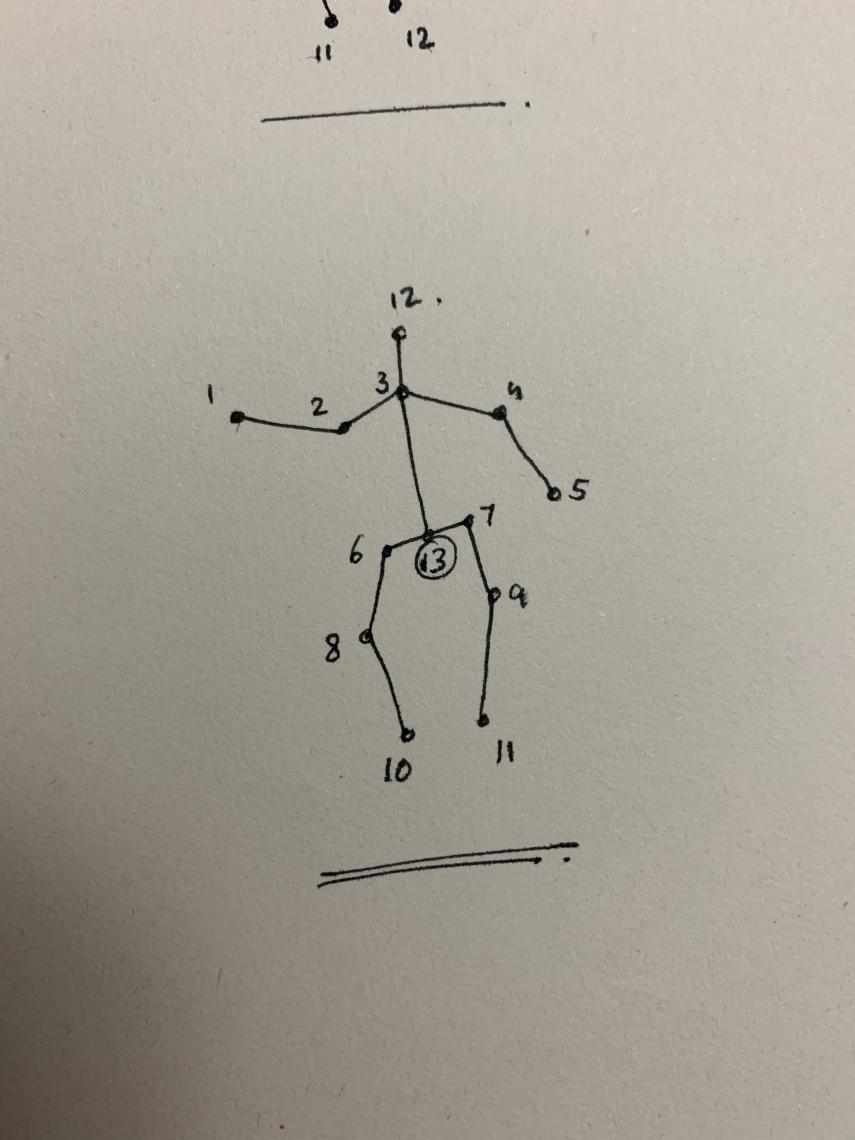 11 12
12.
1 2 3 4
5
6 13 7
8 9
10 11